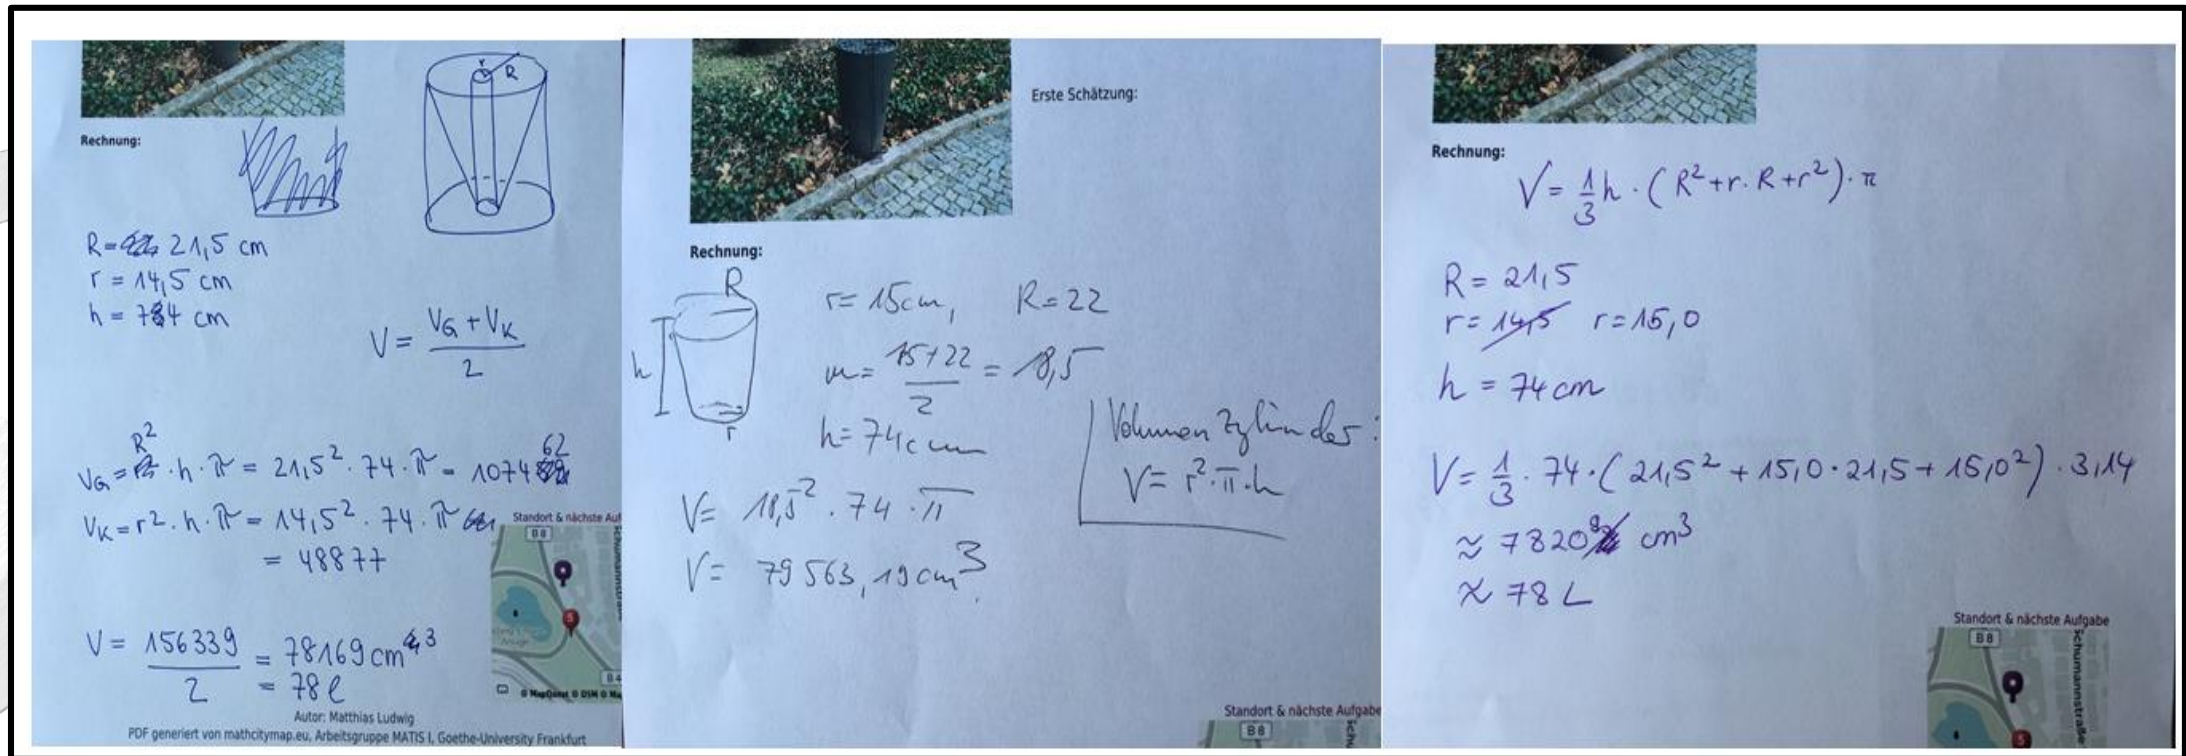 r
R
Rechnung:
R = 21,5 cm
r = 14,5 cm
h = 74 cm
V = (V_G + V_K) / 2
V_G = R² · h · π = 21,5² · 74 · π = 107462
V_K = r² · h · π = 14,5² · 74 · π
= 48877
Standort & nächste Auf
B 8
5
V = 156339 / 2 = 78169 cm³
= 78 l
B 4
© MapQuest © OSM © Ma
Autor: Matthias Ludwig
PDF generiert von mathcitymap.eu, Arbeitsgruppe MATIS I, Goethe-University Frankfurt
Erste Schätzung:
Rechnung:
R
h
r
r = 15 cm, R = 22
m = (15+22) / 2 = 18,5
h = 74 cm
Volumen Zylinder:
V = r² · π · h
V = 18,5² · 74 · π
V = 79 563,19 cm³
Standort & nächste Aufgabe
B 8
Rechnung:
V = 1/3 h · (R² + r · R + r²) · π
R = 21,5
r = 14,5 r = 15,0
h = 74 cm
V = 1/3 · 74 · (21,5² + 15,0 · 21,5 + 15,0²) · 3,14
≈ 78208 cm³
≈ 78 L
Standort & nächste Aufgabe
B 8
Schumannstraße
5